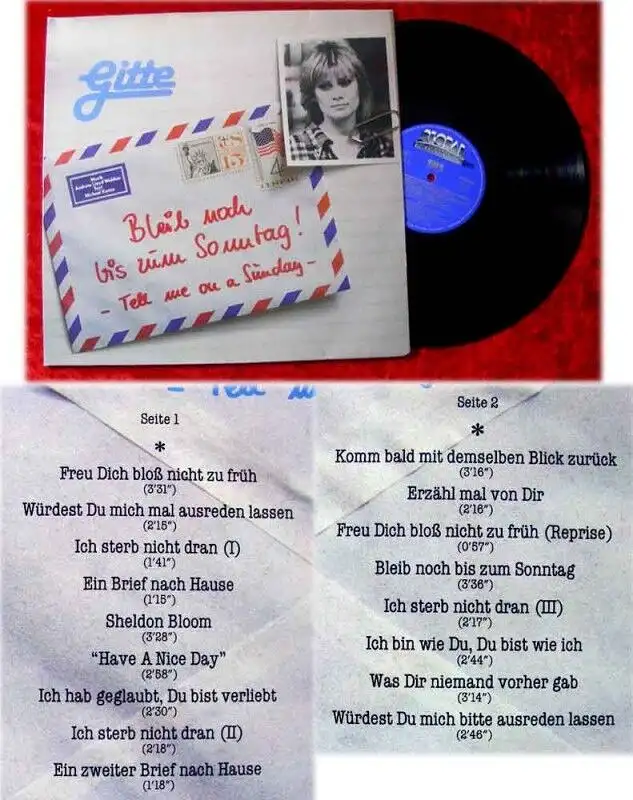 Gitte
Musik
Andrew Lloyd Webber
Text
Michael Kunze
15
4
Bleib noch
bis zum Sonntag!
- Tell me on a Sunday -
Seite 1
*
Freu Dich bloß nicht zu früh
(3'31")
Würdest Du mich mal ausreden lassen
(2'15")
Ich sterb nicht dran (I)
(1'41")
Ein Brief nach Hause
(1'15")
Sheldon Bloom
(3'28")
“Have A Nice Day”
(2'58")
Ich hab geglaubt, Du bist verliebt
(2'30")
Ich sterb nicht dran (II)
(2'18")
Ein zweiter Brief nach Hause
(1'18")
Seite 2
*
Komm bald mit demselben Blick zurück
(3'16")
Erzähl mal von Dir
(2'16")
Freu Dich bloß nicht zu früh (Reprise)
(0'57")
Bleib noch bis zum Sonntag
(3'36")
Ich sterb nicht dran (III)
(2'17")
Ich bin wie Du, Du bist wie ich
(2'44")
Was Dir niemand vorher gab
(3'14")
Würdest Du mich bitte ausreden lassen
(2'46")